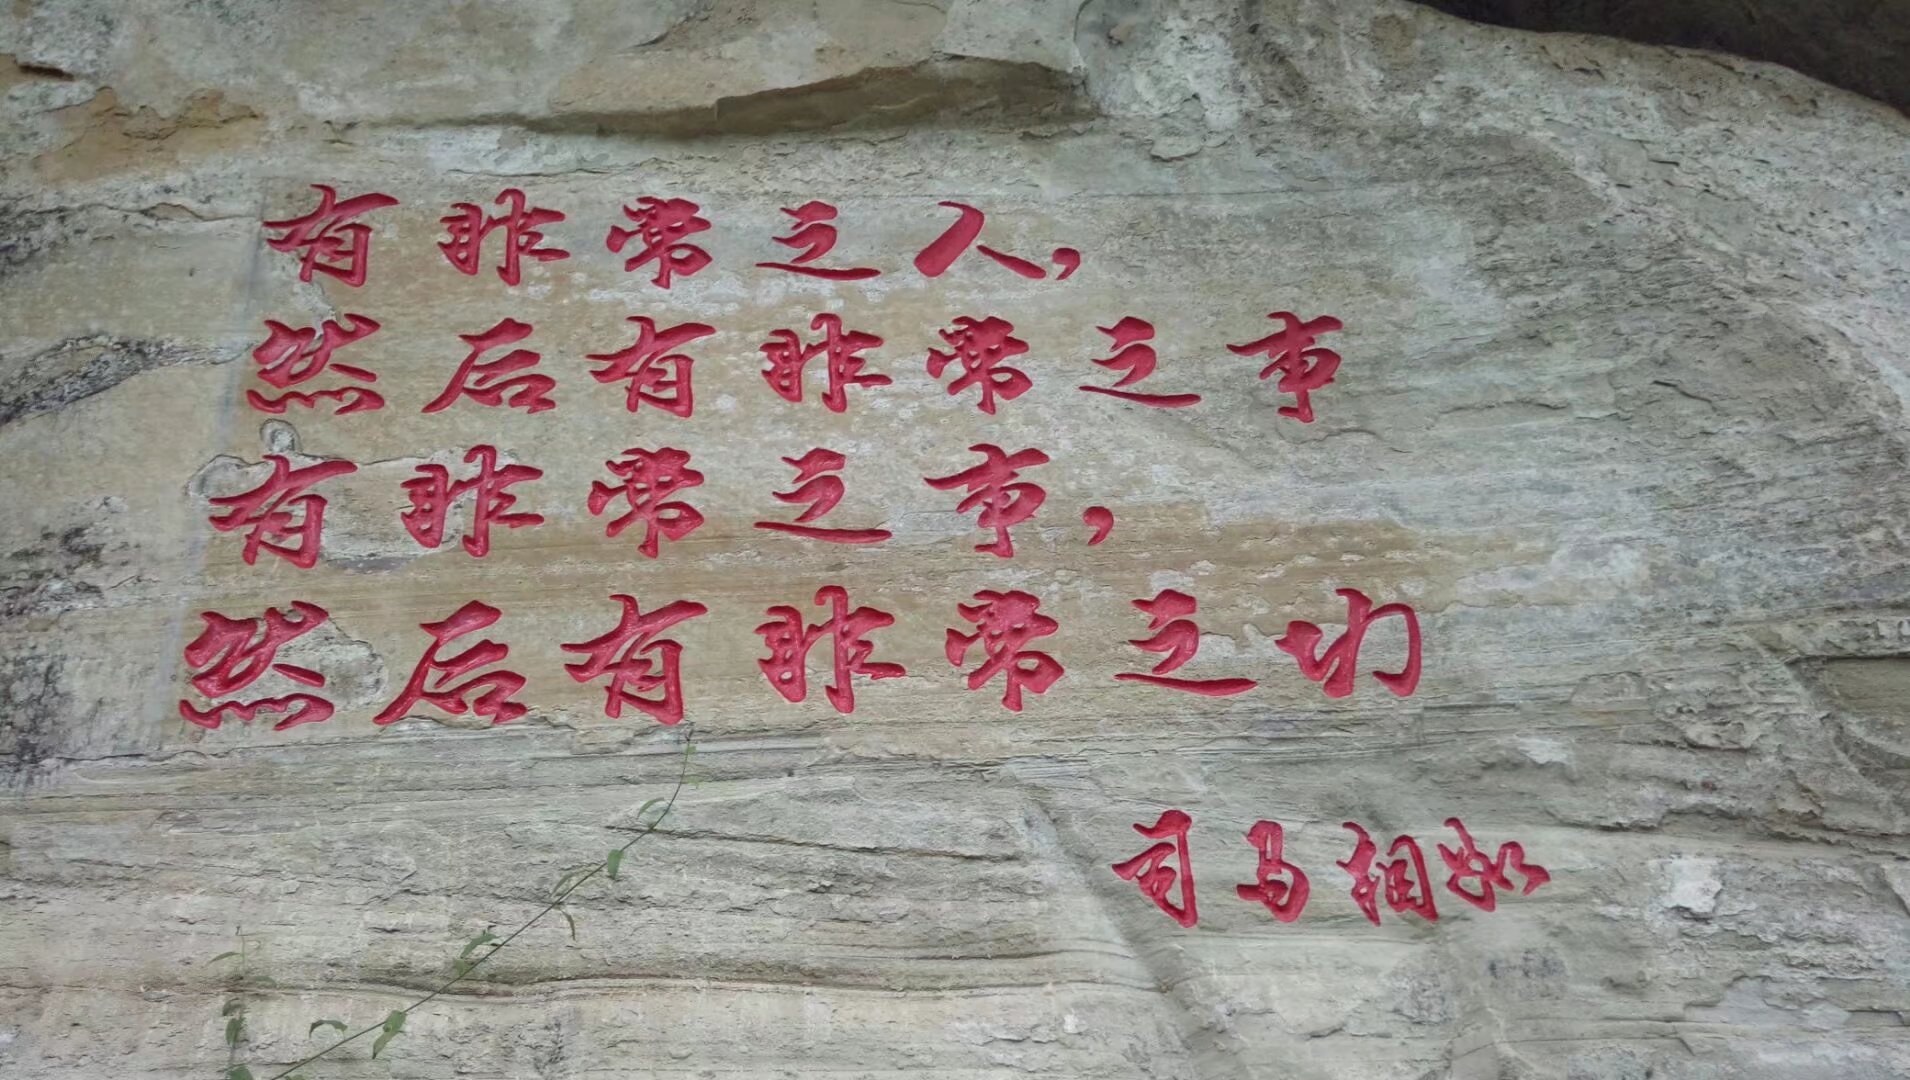 有非常之人,
然后有非常之事
有非常之事,
然后有非常之功
司马相如